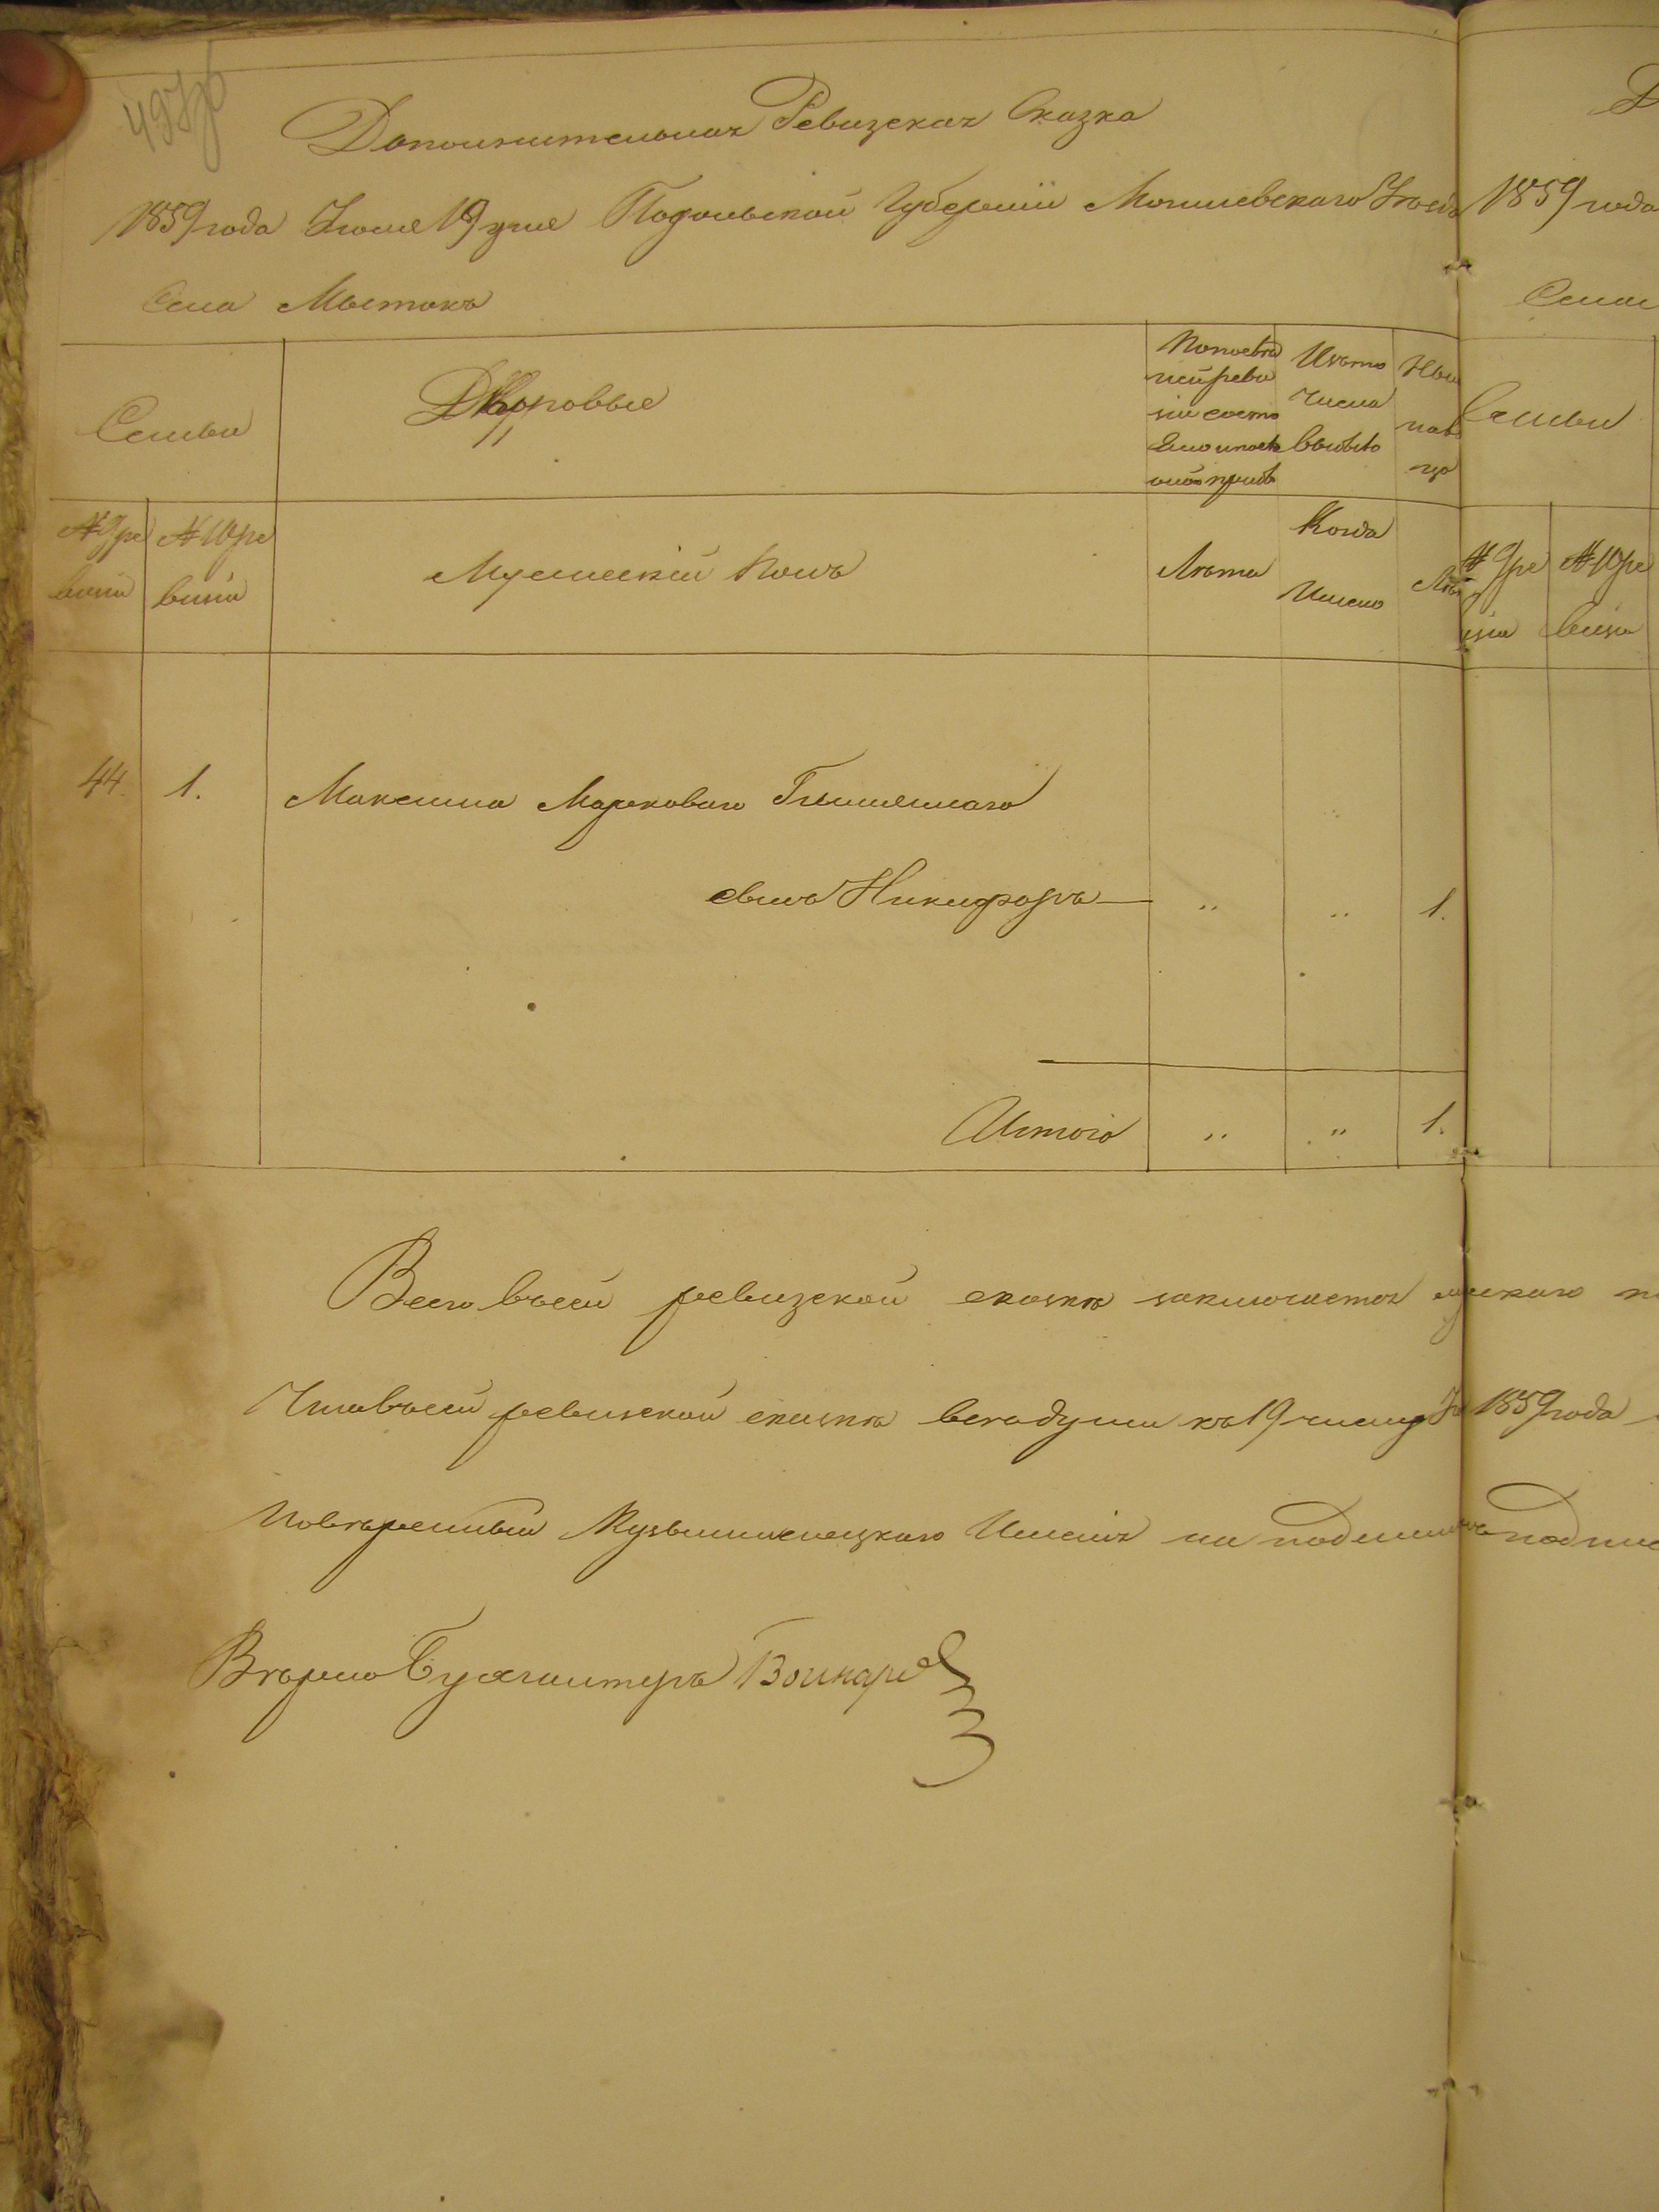 497
Дополнительная Ревизская Сказка
1859 года Июня 19 дня Подольской Губернии Могилевскаго Уезда
Села Мытокъ
Семьи
Дворовые
По последней ревизіи состояло и после оной прибыло
Изъ того числа выбыло
Ныне на лицо
№ 9 ре визіи
№ 10 ре визіи
Мужескій полъ
Лѣта
Когда Именно
44. 1. Максима Маркового
сынъ Никифоръ — " " 1.
Итого " " 1.
Всего в сей ревизской сказкѣ заключается мужскаго
Что въ сей ревизской сказкѣ все души къ 19 числу
Повѣренный Кузьминецкаго Именія на подлинномъ
Вѣрно Бухгалтеръ
1859 года
Семьи
№ 9 ре
№ 10 ре визіи
1859 года